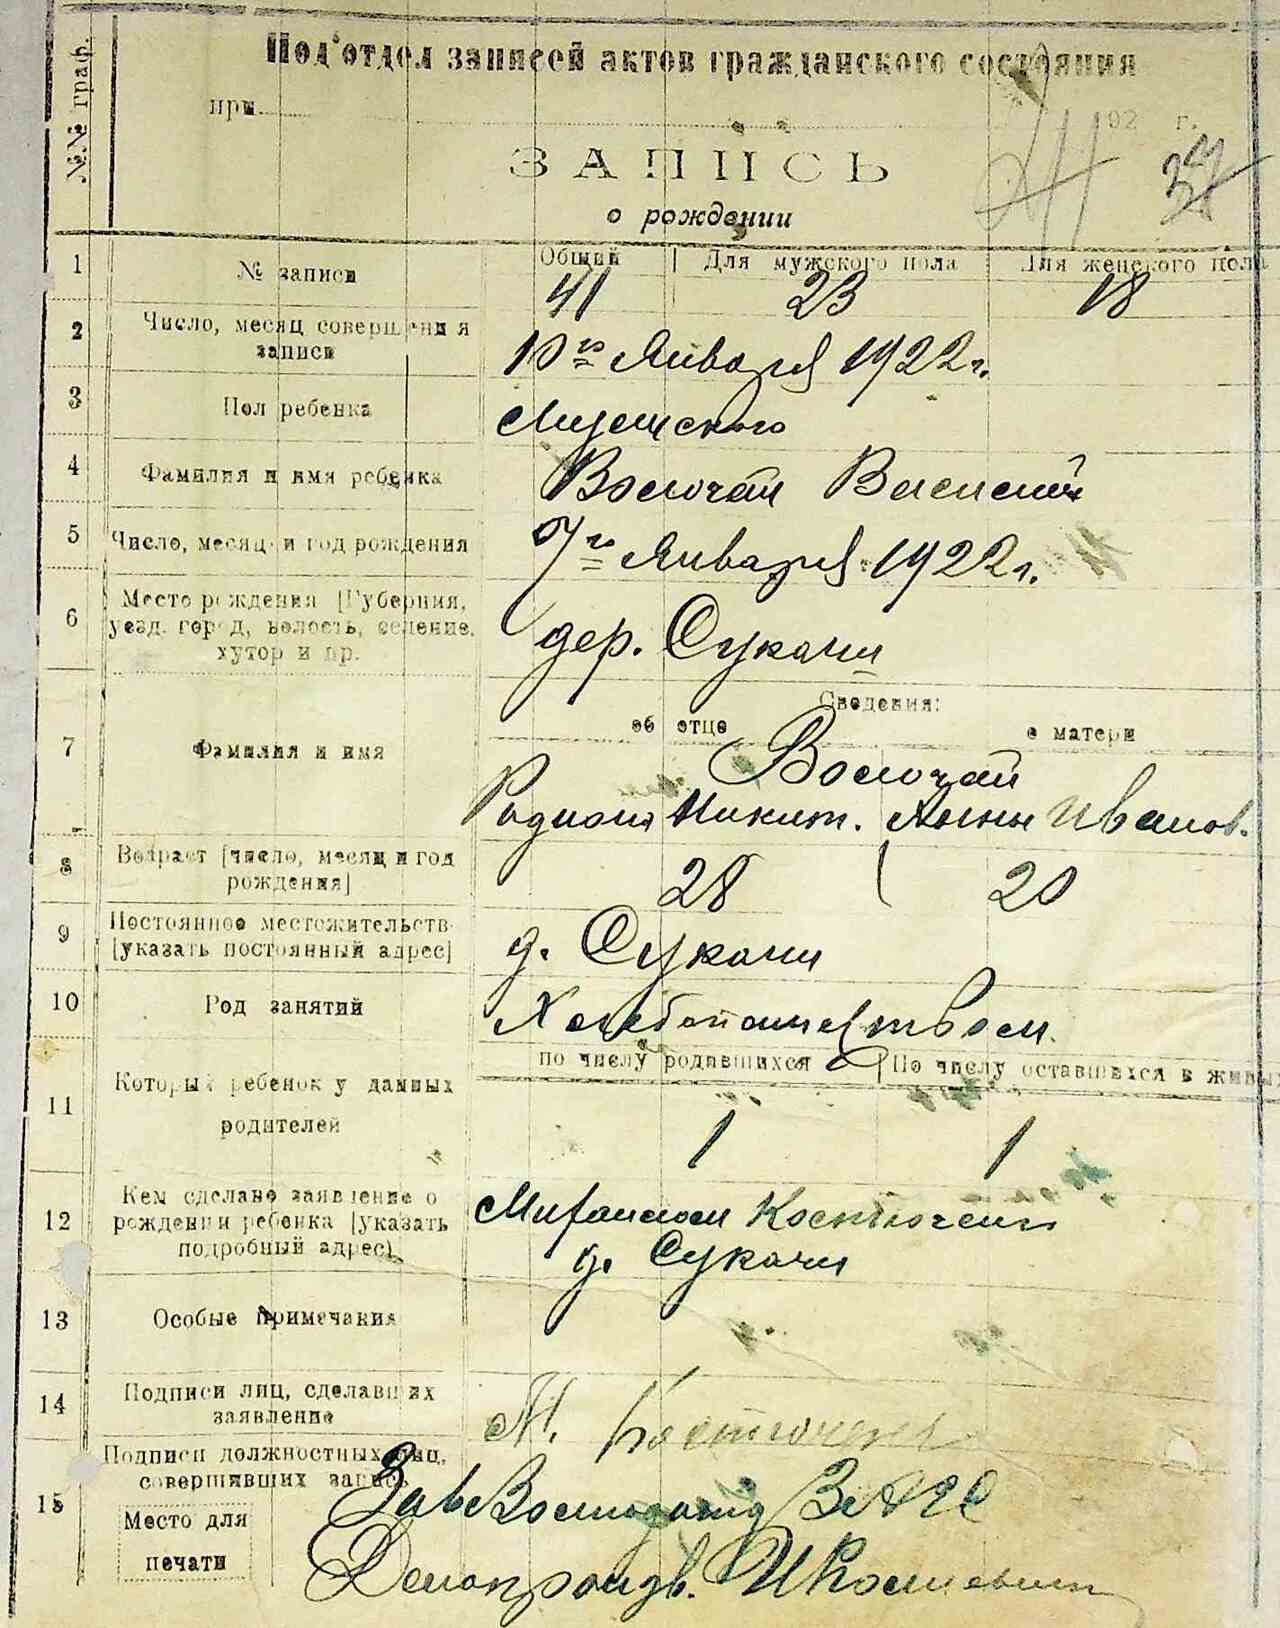 №№ граф.
Под'отдел записей актов гражданского состояния
при
192 г.
41 37
ЗАПИСЬ
о рождении
1 № записи Общий Для мужского пола Для женского пола
41 23 18
2 Число, месяц совершения
записи
10го Января 1922г.
3 Пол ребенка Мужского
4 Фамилия и имя ребенка Василий
5 Число, месяц и год рождения 7го Января 1922г.
6 Место рождения [Губерния,
уезд. город, волость, селение,
хутор и пр.
дер. Сукачи
Сведения:
об отце о матери
7 Фамилия и имя
Родион Никит. Анна Иванов.
8 Возраст [число, месяц и год
рождения]
28 20
9 Постоянное местожительств
[указать постоянный адрес]
д. Сукачи
10 Род занятий Хлебопашеством
11 Который ребенок у данных
родителей
по числу родившихся По числу оставшихся в живых
1 1
12 Кем сделано заявление о
рождении ребенка [указать
подробный адрес)
Костючен
д. Сукачи
13 Особые примечания
14 Подписи лиц, сделавших
заявление
М. Костючен
15 Подписи должностных лиц,
совершивших запись
Зав ЗАГС
Место для
печати
Делопроизв.